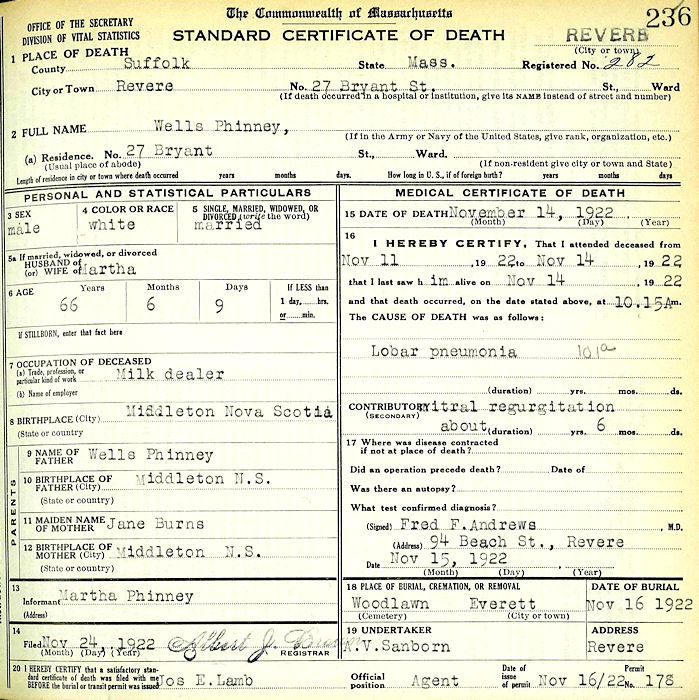 The Commonwealth of Massachusetts
236
OFFICE OF THE SECRETARY
DIVISION OF VITAL STATISTICS
STANDARD CERTIFICATE OF DEATH
REVERE
(City or town)
1 PLACE OF DEATH
County Suffolk State Mass. Registered No. 282
City or Town Revere No. 27 Bryant St. St., Ward
(If death occurred in a hospital or institution, give its NAME instead of street and number)
2 FULL NAME Wells Phinney,
(If in the Army or Navy of the United States, give rank, organization, etc.)
(a) Residence. No. 27 Bryant St., Ward.
(Usual place of abode) (If non-resident give city or town and State)
Length of residence in city or town where death occurred years months days. How long in U. S., if of foreign birth? years months days.
PERSONAL AND STATISTICAL PARTICULARS
3 SEX 4 COLOR OR RACE 5 SINGLE, MARRIED, WIDOWED, OR
DIVORCED (write the word)
male white married
5a If married, widowed, or divorced
HUSBAND of
(or) WIFE of Martha
6 AGE Years Months Days If LESS than
1 day, hrs.
66 6 9
or min.
If STILLBORN, enter that fact here
7 OCCUPATION OF DECEASED
(a) Trade, profession, or
particular kind of work Milk dealer
(b) Name of employer
8 BIRTHPLACE (City) Middleton Nova Scotia
(State or country)
PARENTS
9 NAME OF
FATHER Wells Phinney
10 BIRTHPLACE OF
FATHER (City) Middleton N.S.
(State or country)
11 MAIDEN NAME
OF MOTHER Jane Burns
12 BIRTHPLACE OF
MOTHER (City) Middleton N.S.
(State or country)
13
Informant Martha Phinney
(Address)
14
Filed Nov 24, 1922 Albert J.
(Month) (Day) (Year) REGISTRAR
MEDICAL CERTIFICATE OF DEATH
15 DATE OF DEATH November 14, 1922
(Month) (Day) (Year)
16
I HEREBY CERTIFY, That I attended deceased from
Nov 11, 1922 to Nov 14, 1922
that I last saw him alive on Nov 14, 1922
and that death occurred, on the date stated above, at 10.15A m.
The CAUSE OF DEATH was as follows:
Lobar pneumonia 101a
(duration) yrs. mos. ds.
CONTRIBUTORY mitral regurgitation
(SECONDARY)
about (duration) yrs. 6 mos. ds.
17 Where was disease contracted
if not at place of death?
Did an operation precede death? Date of
Was there an autopsy?
What test confirmed diagnosis?
(Signed) Fred F. Andrews, M.D.
(Address) 94 Beach St., Revere
Date Nov 15, 1922
(Month) (Day) (Year)
18 PLACE OF BURIAL, CREMATION, OR REMOVAL DATE OF BURIAL
Woodlawn Everett Nov 16 1922
(Cemetery) (City or town)
19 UNDERTAKER ADDRESS
V.Sanborn Revere
20 I HEREBY CERTIFY that a satisfactory stan-
dard certificate of death was filed with me
BEFORE the burial or transit permit was issued Jos E. Lamb
Official
position Agent
Date of
issue
of permit Nov 16/22
Permit
No. 178